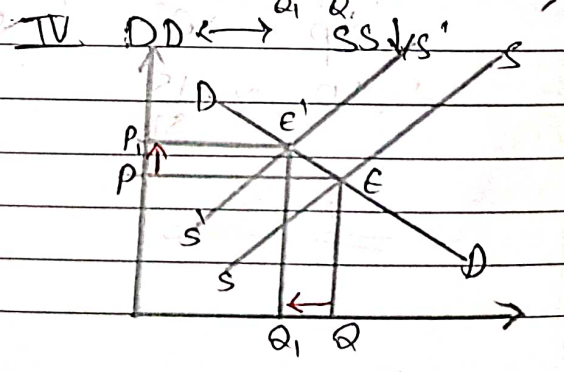 Q₁ Q.
IV DD ↔ SS↓
S' S
D
E'
P₁
P E
S'
S D
Q₁ Q